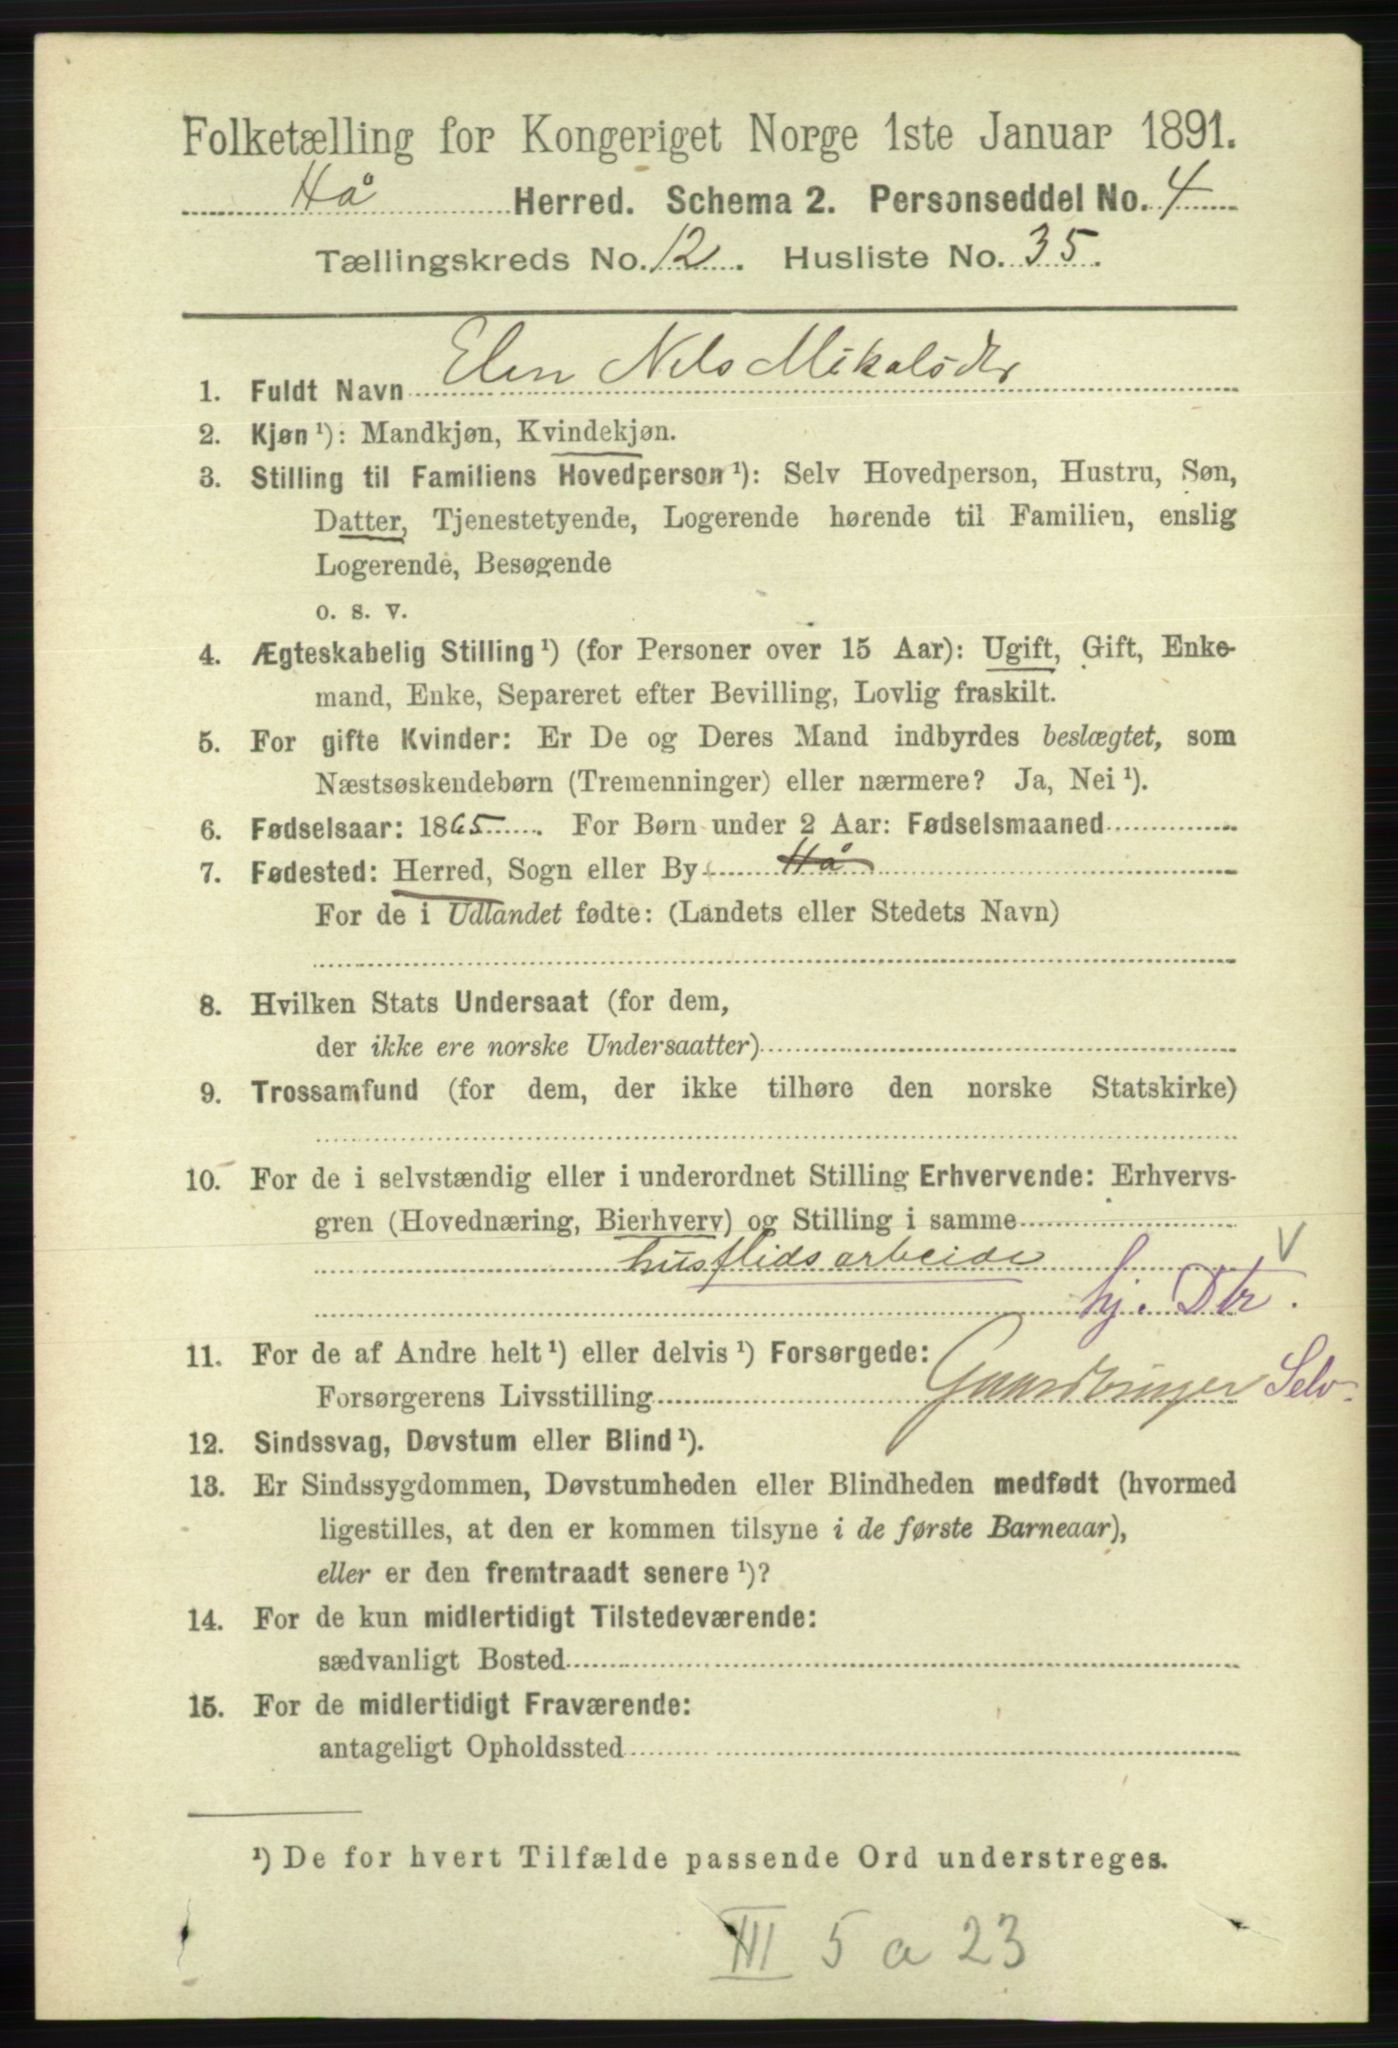 Folketælling for Kongeriget Norge 1ste Januar 1891.
Hå Herred. Schema 2. Personseddel No. 4
Tællingskreds No. 12. Husliste No. 35.
1. Fuldt Navn Elen Nels Mikalsdtr
2. Kjøn ¹): Mandkjøn, Kvindekjøn.
3. Stilling til Familiens Hovedperson ¹): Selv Hovedperson, Hustru, Søn,
Datter, Tjenestetyende, Logerende hørende til Familien, enslig
Logerende, Besøgende
o. s. v.
4. Ægteskabelig Stilling ¹) (for Personer over 15 Aar): Ugift, Gift, Enke-
mand, Enke, Separeret efter Bevilling, Lovlig fraskilt.
5. For gifte Kvinder: Er De og Deres Mand indbyrdes beslægtet, som
Næstsøskendebørn (Tremenninger) eller nærmere? Ja, Nei ¹).
6. Fødselsaar: 1865. For Børn under 2 Aar: Fødselsmaaned
7. Fødested: Herred, Sogn eller By Hå
For de i Udlandet fødte: (Landets eller Stedets Navn)
8. Hvilken Stats Undersaat (for dem,
der ikke ere norske Undersaatter)
9. Trossamfund (for dem, der ikke tilhøre den norske Statskirke)
10. For de i selvstændig eller i underordnet Stilling Erhvervende: Erhvervs-
gren (Hovednæring, Bierhverv) og Stilling i samme
husflids arbeide V
hj. Dtr.
11. For de af Andre helt ¹) eller delvis ¹) Forsørgede:
Forsørgerens Livsstilling Gaardbruger Selv
12. Sindssvag, Døvstum eller Blind ¹).
13. Er Sindssygdommen, Døvstumheden eller Blindheden medfødt (hvormed
ligestilles, at den er kommen tilsyne i de første Barneaar),
eller er den fremtraadt senere ¹)?
14. For de kun midlertidigt Tilstedeværende:
sædvanligt Bosted
15. For de midlertidigt Fraværende:
antageligt Opholdssted
¹) De for hvert Tilfælde passende Ord understreges.
III 5 a 23